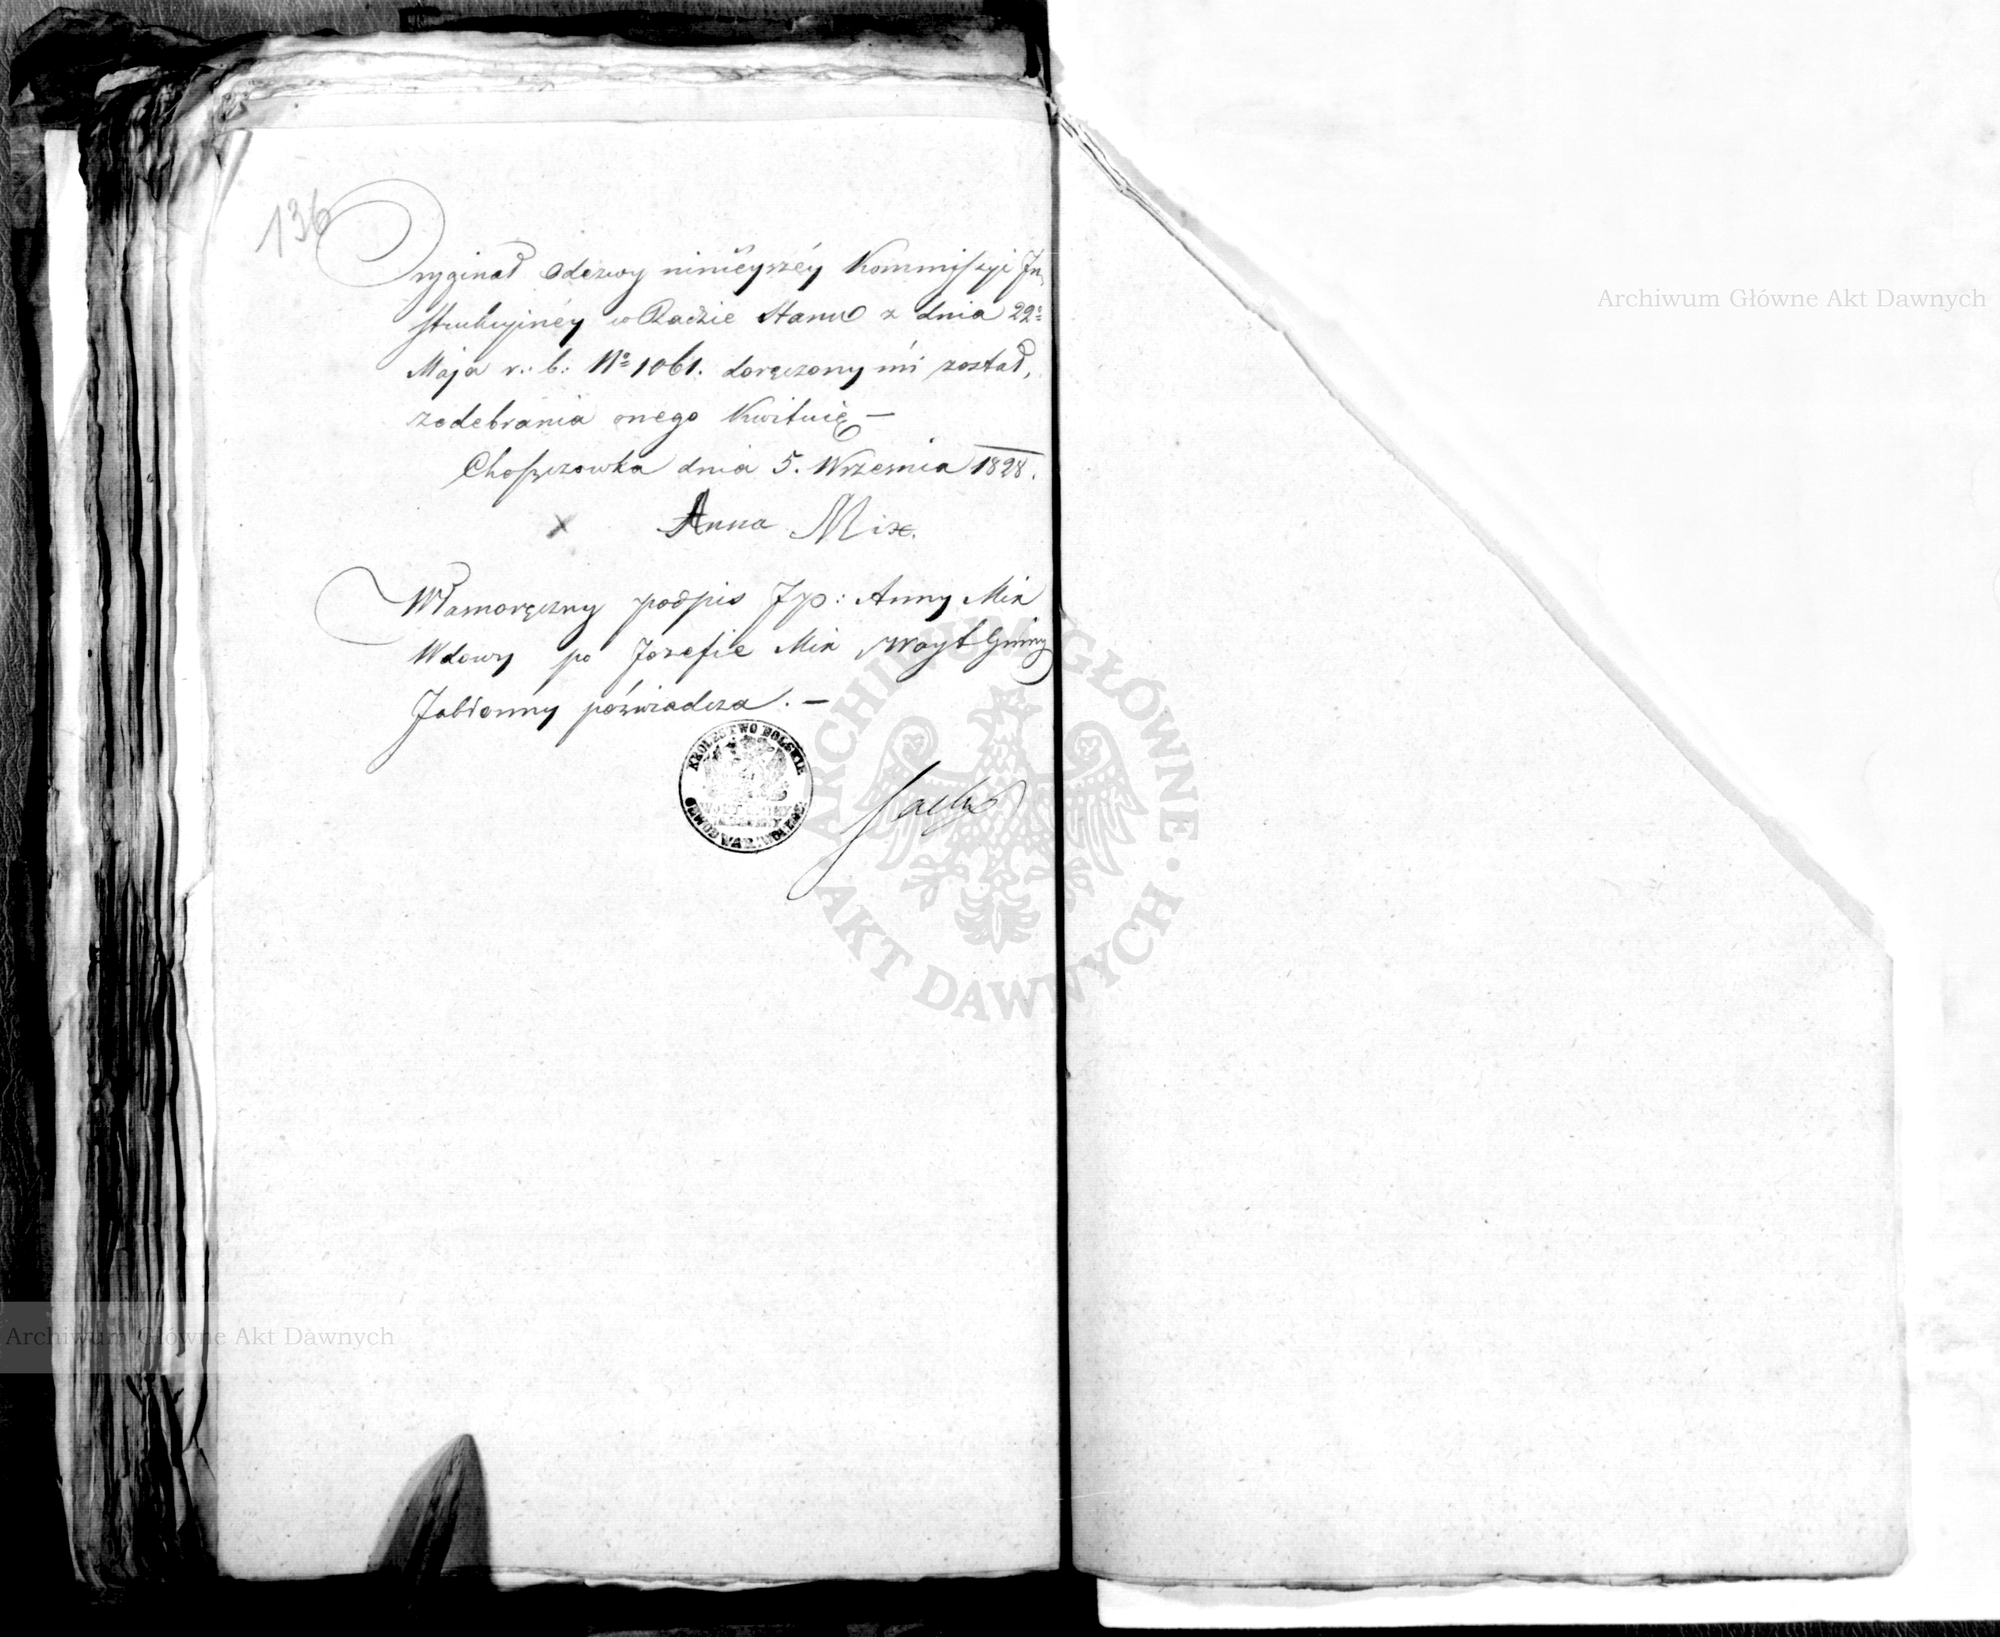 136
Oryginał Odezwy ninieyszéy Kommissyi In
strukcyinéy w Radzie Stanu z dnia 22º
Maja r. b: Nº 1061. doręczony mi został,
z odebrania onego Kwituię —
Choszczowka dnia 5. Wrzesnia 1828.
x Anna Mix.
Własnoręczny podpis Jp: Anny Mix
Wdowy po Jozefie Mix Woyt Gminy
Jabłonny poświadcza. —
KRÓLESTWO POLSKIE
WOYT GMINY
OBWOD WAR.
ARCHIWUM GŁÓWNE AKT DAWNYCH
Archiwum Główne Akt Dawnych
Archiwum Główne Akt Dawnych